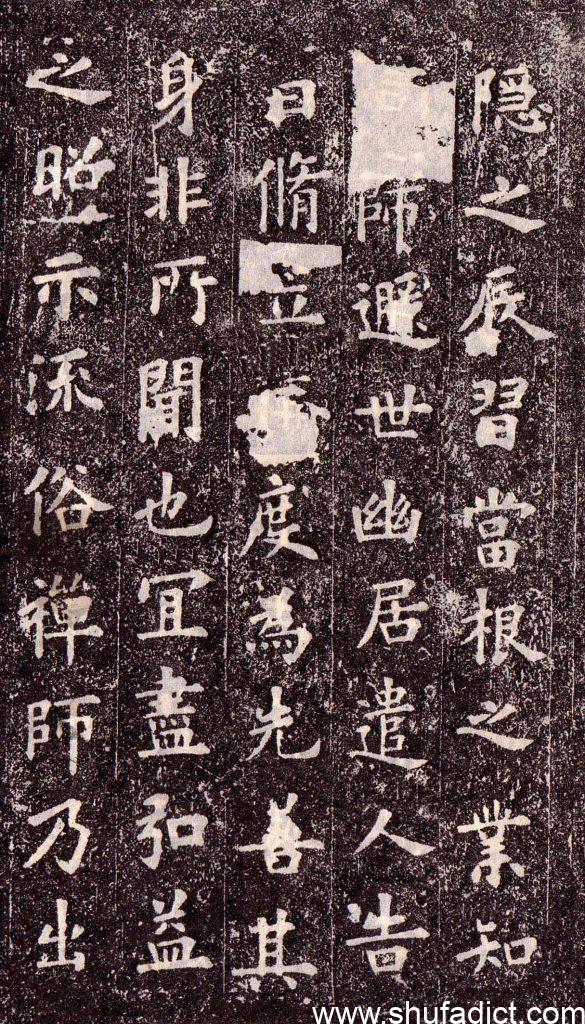 隱之辰習當根之業知
師遯世幽居遣人告
曰脩立度為先善其
身非所聞也冝盡弘益
之照示流俗禪師乃出
www.shufadict.com